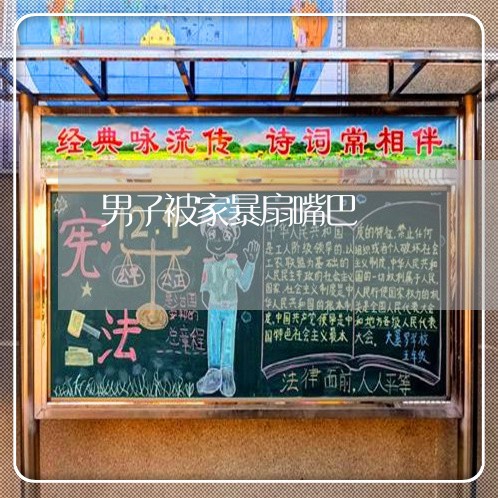 经典咏流传 诗词常相伴
男子被家暴扇嘴巴
12.4
宪
法
公平
公正
总章程
中华人民共和国
是工人阶级领导的,以
工农联盟为基础的
人民民主专政的社会主义
国家,社会主义制度是中
华人民共和国的根本制
度,中国共产党领导是中
国特色社会主义最本
质的特征,禁止任何
组织或者个人破坏社会
主义制度,中华人民共和
国的一切权利属于人民,
人民行使国家权力的机
关是全国人民代表大会
和地方各级人民代表
大会。
五年级
法律面前,人人平等